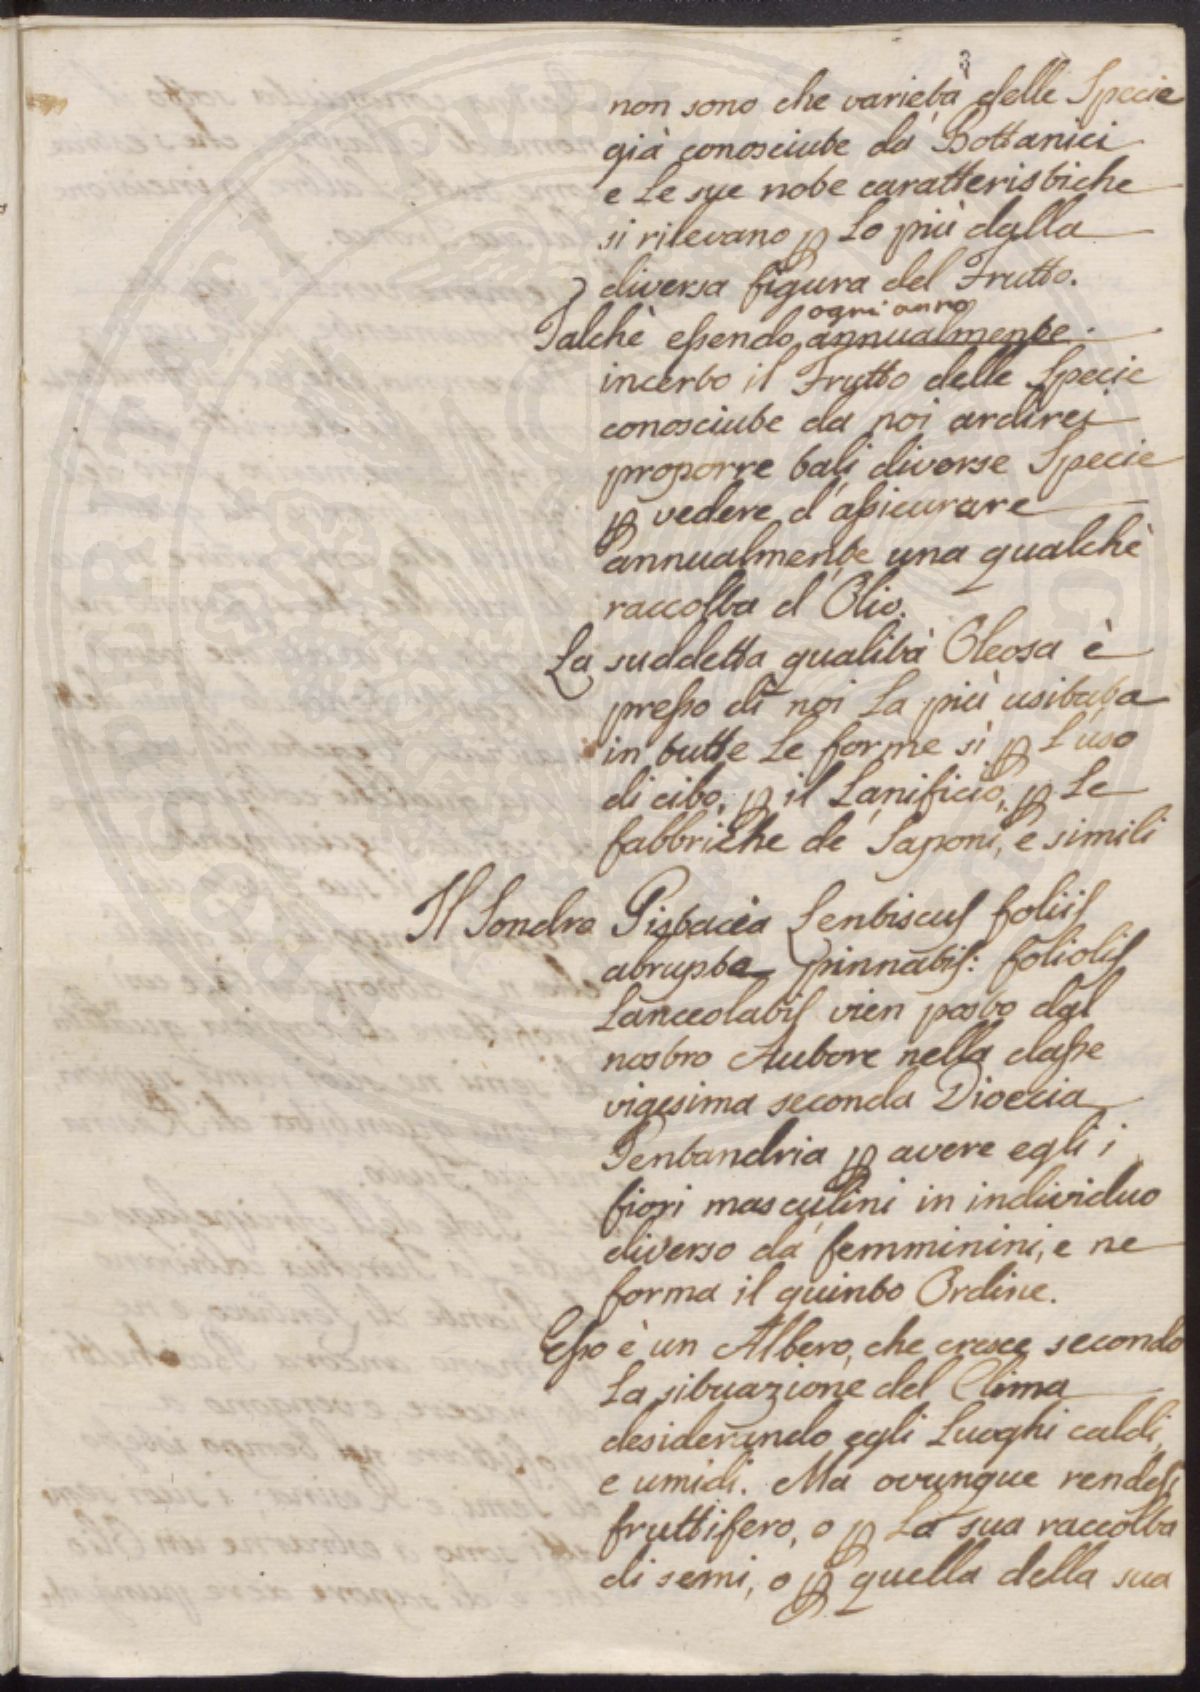 3
non sono che varietà delle Specie
già conosciute da' Bottanici
e Le sue note caratteristiche
si rilevano ꝑ Lo più dalla
diversa figura del Frutto.
ogni anno
Talchè essendo annualmente
incerto il Frutto delle Specie
conosciute da noi ardirei
proporre tali diverse Specie
ꝑ vedere d'assicurare
annualmente una qualchè
raccolta d'Olio.
La suddetta qualità Oleosa è
presso di noi La più usitata
in tutte Le forme sì ꝑ L'uso
di cibo, ꝑ il Lanificio, ꝑ Le
fabbriche de' Saponi, e simili
Il Sondro Pistacia Lentiscus foliis
abrupte pinnatis: foliolis
Lanceolatis vien posto dal
nostro Autore nella classe
vigesima seconda Dioecia
Pentandria ꝑ avere egli i
fiori masculini in individuo
diverso da' femminini, e ne
forma il quinto Ordine.
Esso è un Albero, che cresce secondo
La situazione del Clima
desiderando egli Luoghi caldi,
e umidi. Ma ovunque rendesi
fruttifero, o ꝑ La sua raccolta
di semi, o ꝑ quella della sua